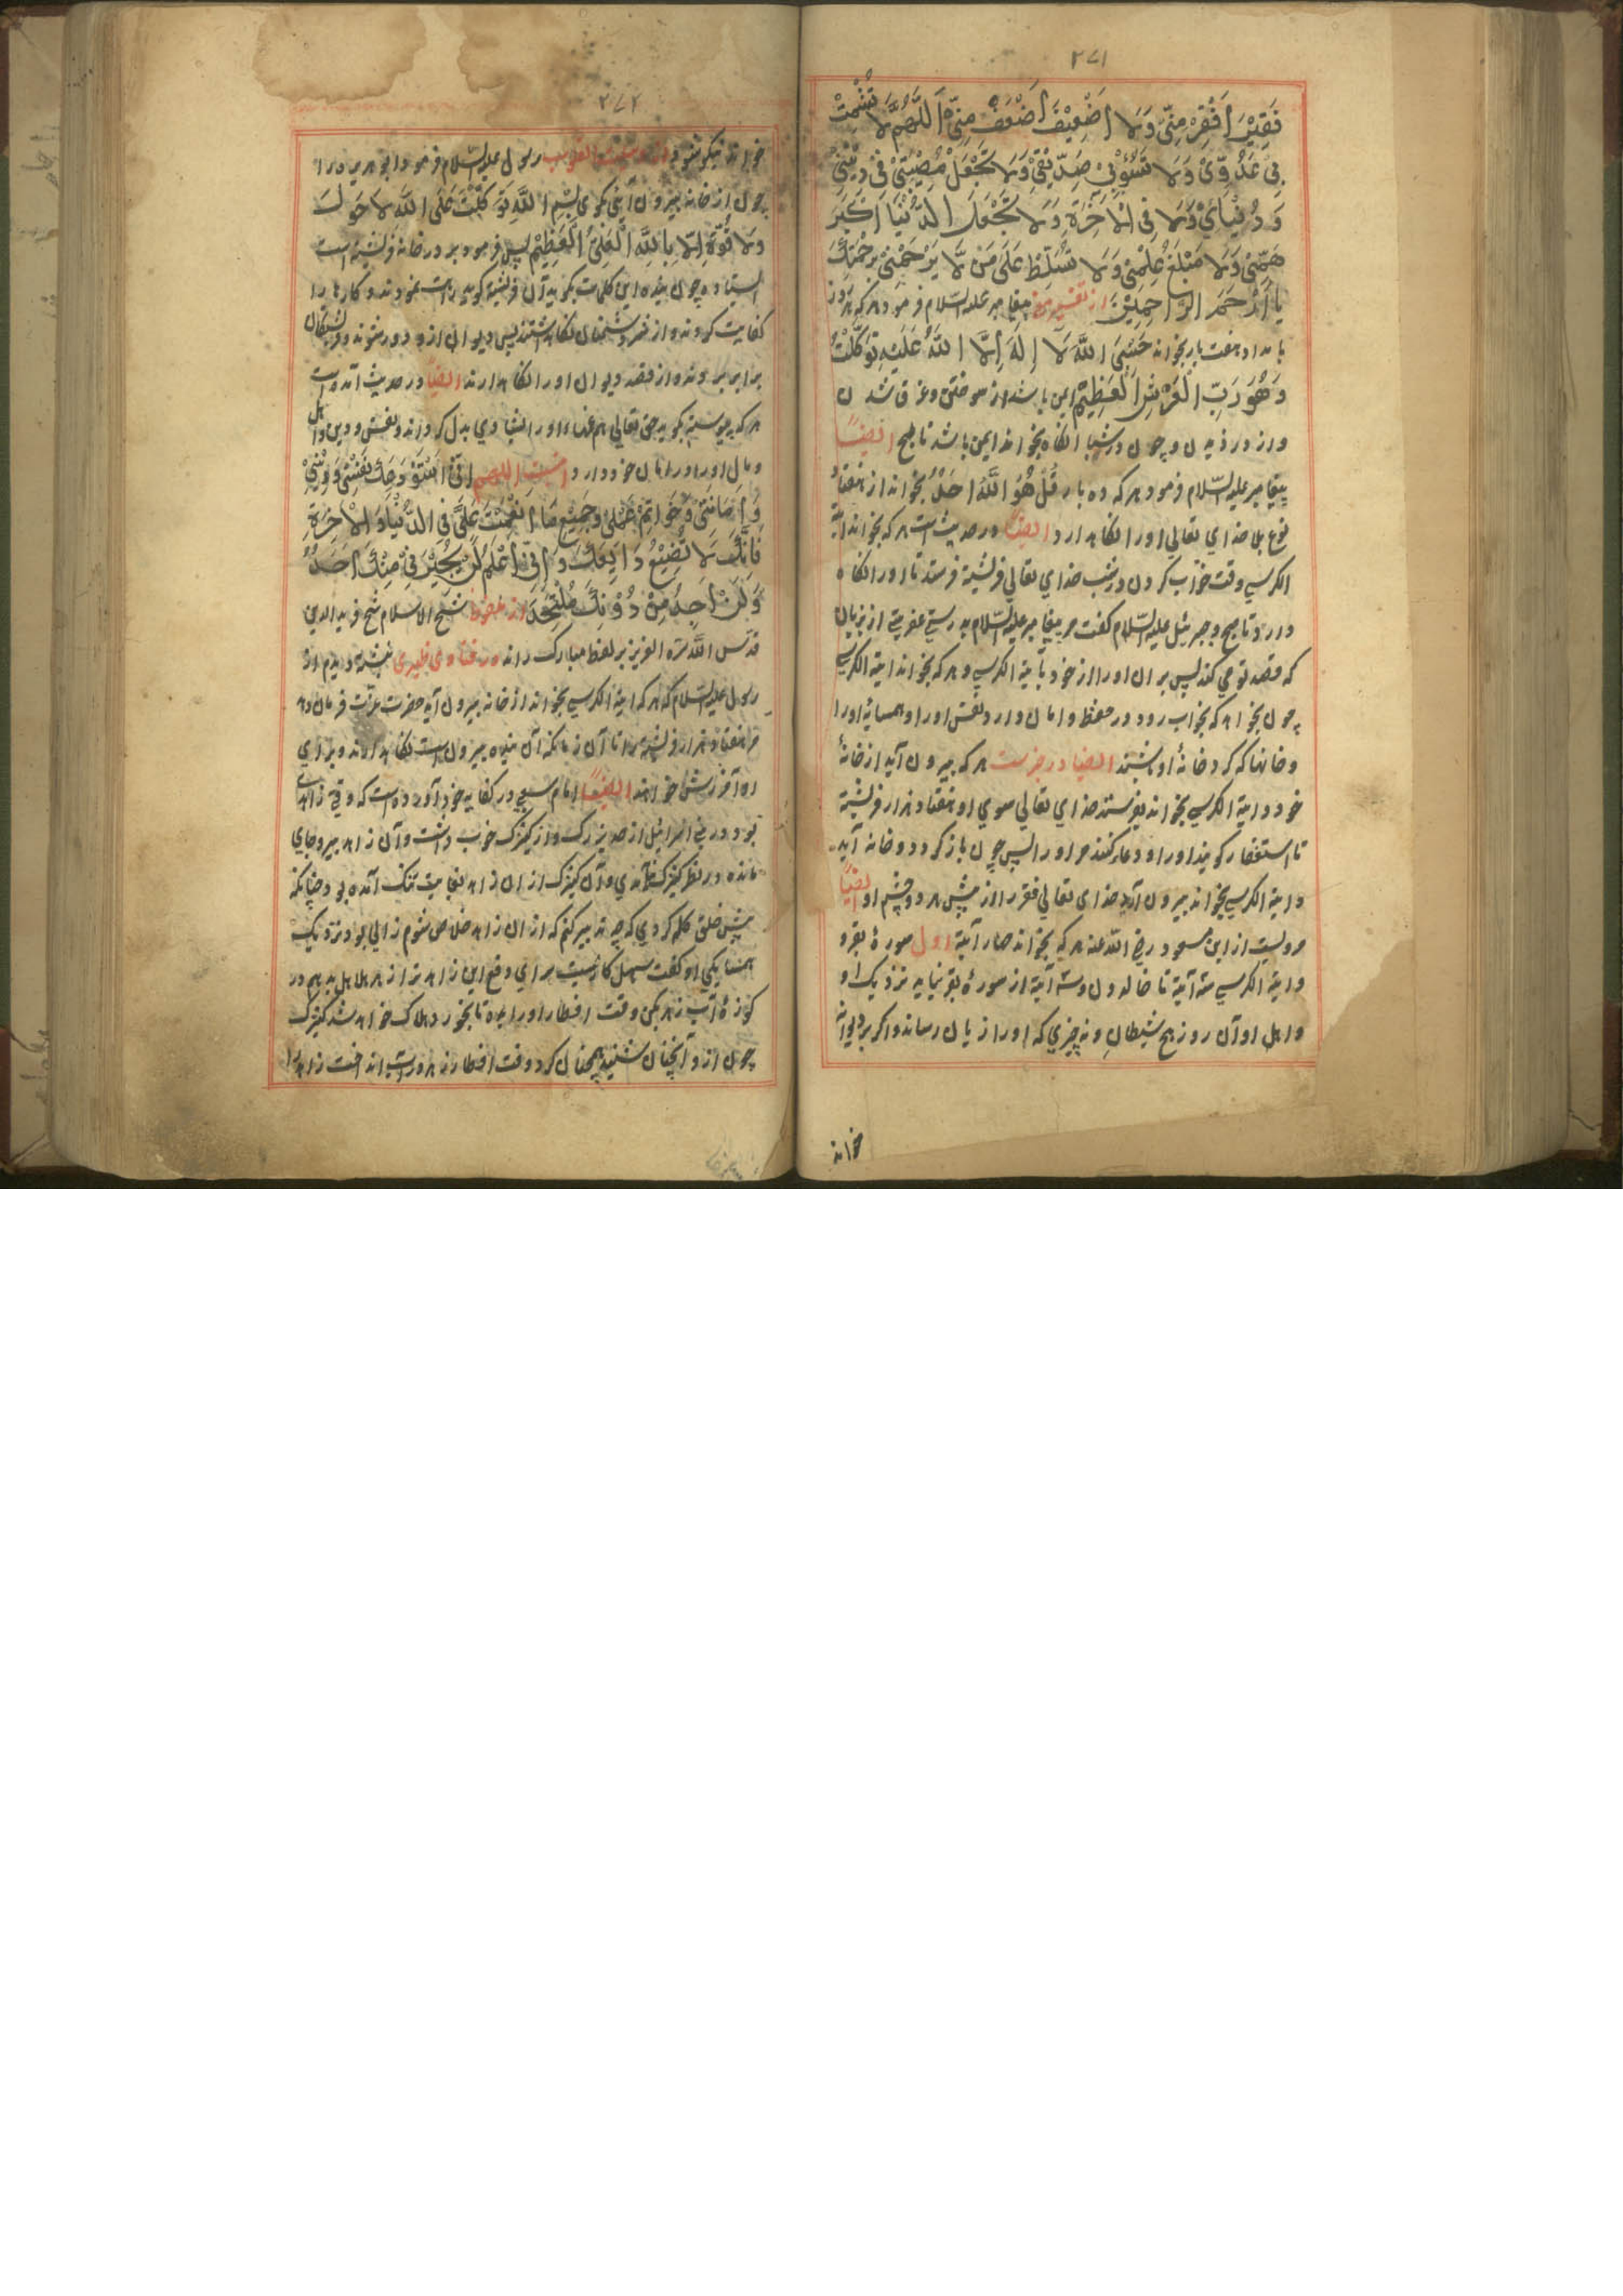 ۲۷۱
فَقِيْرَ اَفْقِرْ مِنِّي وَلَا اَضْعِيْفَ اَضْعَفْ مِنِّي اَللّٰهُمَّ لَا تُشْمِتْ
بِيْ عَدُوِّيْ وَلَا تَسُؤْبِيْ صَدِّيْقِيْ وَلَا تَجْعَلْ مُصِيْبَتِيْ فِيْ دِيْنِيْ
وَدُنْيَايَ وَلَا فِي الْاٰخِرَةِ وَلَا تَجْعَلِ الدُّنْيَا اَكْبَرَ
هَمِّيْ وَلَا مَبْلَغَ عِلْمِيْ وَلَا تُسَلِّطْ عَلَيَّ مَنْ لَّا يَرْحَمُنِيْ بِرَحْمَتِكَ
يَا اَرْحَمَ الرَّاحِمِيْنَ از تفسير پيغامبر عليه السّلام فرمود هركه هر روز
بامداد هفت بار بخواند حَسْبِيَ اللّٰهُ لَا اِلٰهَ اِلَّا اللّٰهُ عَلَيْهِ تَوَكَّلْتُ
وَهُوَ رَبُّ الْعَرْشِ الْعَظِيْمِ ايمن باشد از سوختن و غرق شدن
واز دزديدن وچون درشبانگاه بخواند ايمن باشد تا صبح ايضًا
پيغامبر عليه السّلام فرمود هركه ده بار قُلْ هُوَ اللّٰهُ اَحَدٌ بخواند از هفتاد
نوع بلا خداي تعالي اورا نگاهدارد ايضًا در حديث است هركه بخواند آية
الكرسي وقت خواب كردن درشب خداي تعالي فرشته فرستد تا اورا نگاه
دارد تا صبح وجبرئيل عليه السّلام گفت مر پيغامبر عليه السّلام بدرستي عفريتي از پريان
كه قصد تو مي كند پس بران اورا از خود بآية الكرسي وهركه بخواند آية الكرسي
چون بخواهد كه بخواب رود در حفظ وامان دارد نفس اورا وهمسايهٔ اورا
وخانها كه گرد خانهٔ او باشند ايضًا در خبرست هركه بيرون آيد از خانهٔ
خود وآية الكرسي بخواند بفرستد خداي تعالي سوي او هفتاد هزار فرشته
تا استغفار گويند اورا ودعا كنند مر اورا پس چون باز گردد وخانه آيد
وآية الكرسي بخواند بيرون آرد خداي تعالي فقر را از پيش هر دو چشم او ايضًا
مرويست از ابن مسعود رضي اللّه عنه هركه بخواند چهار آية اول سورهٔ بقره
وآية الكرسي سه آية تا خالدون وسه آية از سورهٔ بقره نيايد نزديك او
واهل او آن روز هيچ شيطان ونه چيزي كه اورا زيان رساند واگر بر ديوانه
خواند
۲۷۲
خواند نيكو شود رسول عليه السّلام فرمود ابو هريره را
چون از خانه بيرون آئي گوي بِسْمِ اللّٰهِ تَوَكَّلْتُ عَلَى اللّٰهِ لَا حَوْلَ
وَلَا قُوَّةَ اِلَّا بِاللّٰهِ الْعَلِيِّ الْعَظِيْمِ پس فرمود بر در خانه فرشته است
ايستاده چون بنده اين كلمات بگويد آن فرشته گويد راست نمودند وكارها را
كفايت كردند واز شر دشمنان نگاه داشتند پس ديوان ازو دور شوند وفرشتگان
برابر بروند واز قصد ديوان اورا نگاهدارند ايضًا در حديث آمده است
هركه پيوسته بگويد حق تعالي هم غم اورا بشادي بدل گرداند ونفس ودين واهل
ومال اورا در امان خود دارد اينست اللهم اِنِّيْ اَسْتَوْدِعُكَ نَفْسِيْ وَدِيْنِيْ
وَاَمَانَتِيْ وَخَوَاتِمَ عَمَلِيْ وَجَمِيْعَ مَا اَنْعَمْتَ عَلَيَّ فِي الدُّنْيَا وَالْاٰخِرَةِ
فَاِنَّكَ لَا تُضِيْعُ وَدَايِعَكَ وَاِنِّيْ اَعْلَمُ لَنْ يُجِيْرَنِيْ مِنْكَ اَحَدٌ
وَلَنْ اَجِدَ مِنْ دُوْنِكَ مُلْتَحَدًا از ملفوظ شيخ الاسلام شيخ فريد الدين
قدّس اللّه سرّه العزيز بر لفظ مبارك راند در فتاوي ظهيري نبشته ديدم از
رسول عليه السّلام كه هركه آية الكرسي بخواند از خانه بيرون آيد حضرت عزّت فرمان دهد
مر هفتاد هزار فرشته را تا آن زمانكه آن بنده بيرون است نگاهدارند وبراي
او آمرزش خواهند ايضًا امام در كفايه خود آورده است كه وقتي زاهدي
بود در بني اسرائيل از حد بزرگ واز كنيزك خوب داشت وآن زاهد پير وجاي
مانده در نظر كنيزك وآن كنيزك ازان زاهد بغايت تنگ آمده بود چنانكه
پيش خلق گله كردي كه چه تدبير كنم كه ازان زاهد خلاص شوم زالي بود نزديك
همسايگي او گفت سهل كاريست براي دفع اين زاهد ترا زهر هلاهل بدهم در
كوزهٔ آب زهر بكن وقت افطار اورا بده تا بخورد هلاك خواهد شد كنيزك
چون ازو آنچنان شنيد همچنان كرد وقت افطار زهر در آب انداخت زاهد را